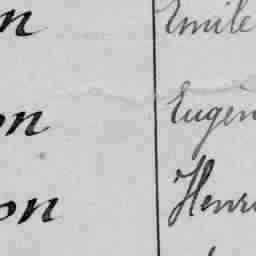 n Emile
on Eugèn
on Henri